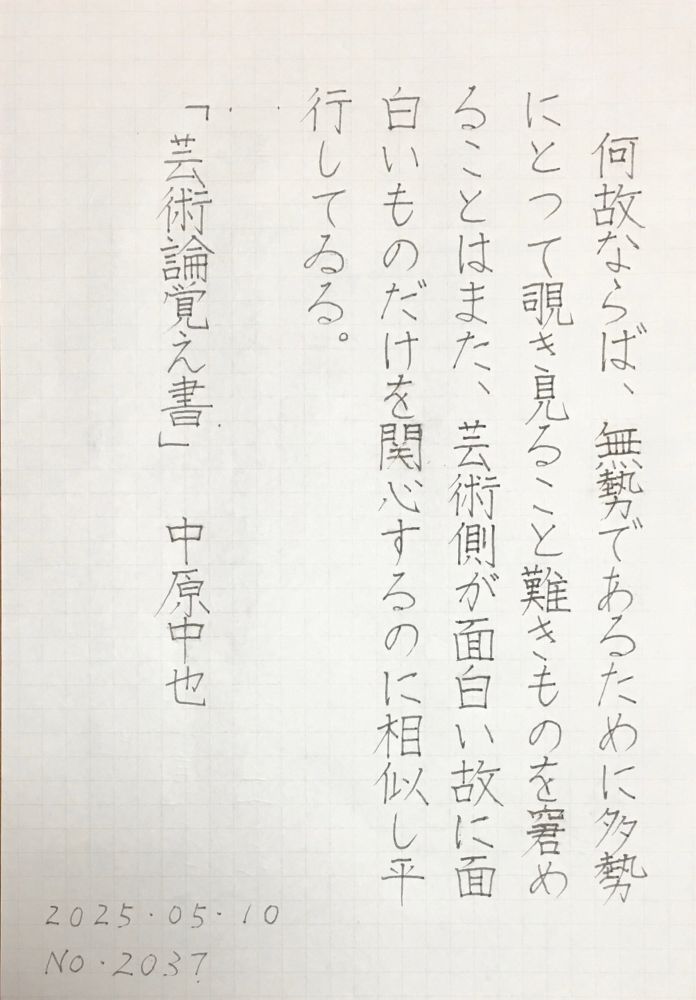 何故ならば、無勢であるために多勢
にとつて覗き見ること難きものを窘め
ることはまた、芸術側が面白い故に面
白いものだけを関心するのに相似し平
行してゐる。
「芸術論覚え書」　中原中也
2025・05・10
No・2037